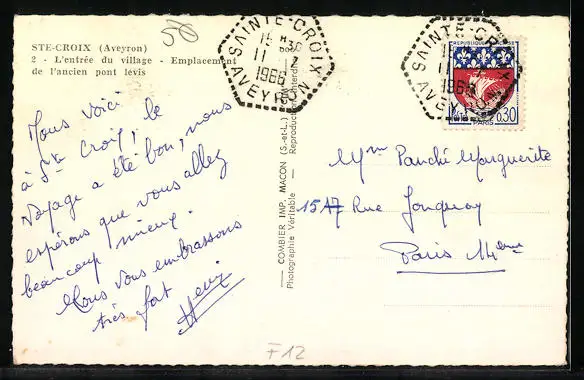 50
STE-CROIX (Aveyron)
2 - L'entrée du village - Emplacement
de l'ancien pont levis
SAINTE-CROIX
15 H 30
11 - 7
1966
AVEYRON
SAINTE-CROIX
11
1966
AVEYRON
REPUBLIQUE FRANÇAISE
0,30
PARIS
Nous voici
à Ste Croix, le
voyage a été bon, nous
espérons que vous allez
beaucoup mieux.
Nous vous embrassons
très fort
COMBIER IMP. MACON (S.-et-L.)
Photographie Véritable
Reproduction interdite
Mme Panché Marguerite
15 17 Rue Jonquoy
Paris 14ème
F12